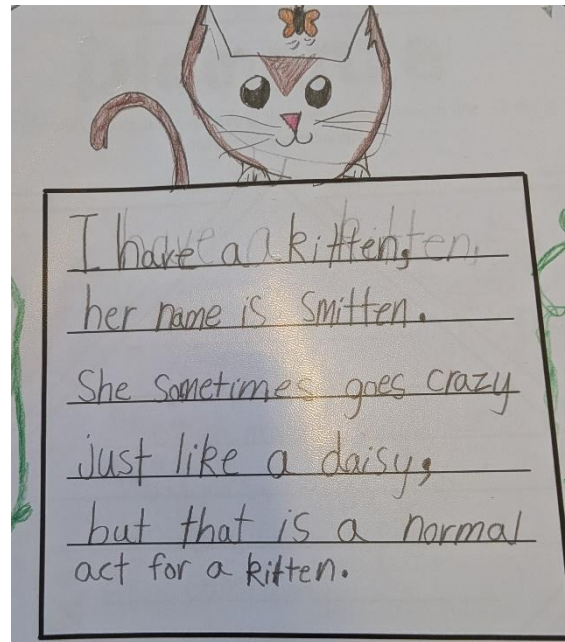 I have a kitten,
her name is Smitten.
She sometimes goes crazy
just like a daisy,
but that is a normal
act for a kitten.